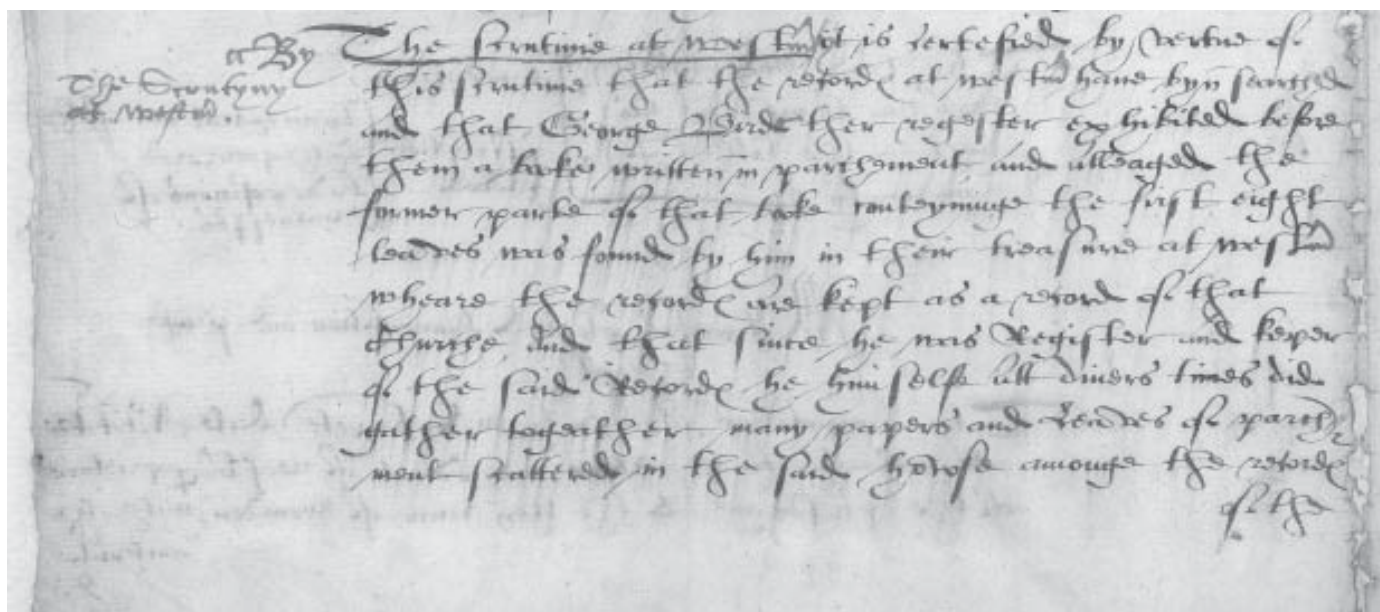 a By
The Scrutyny
at Westm
The scrutinie at westm yt is certefied by vertue of
this scrutinie that the records at westm have byn searched
and that George Birde ther regester exhibited before
them a booke written in parchment and alleaged the
former parte of that booke conteyninge the first eight
leaves was found by him in their treasure at westm
wheare the records are kept as a record of that
Churche And that since he was Register and keper
of the said Records he himselfe att divers times did
gather togeather many papers and leaves of parch
ment scattered in the said howse amonge the records
of the